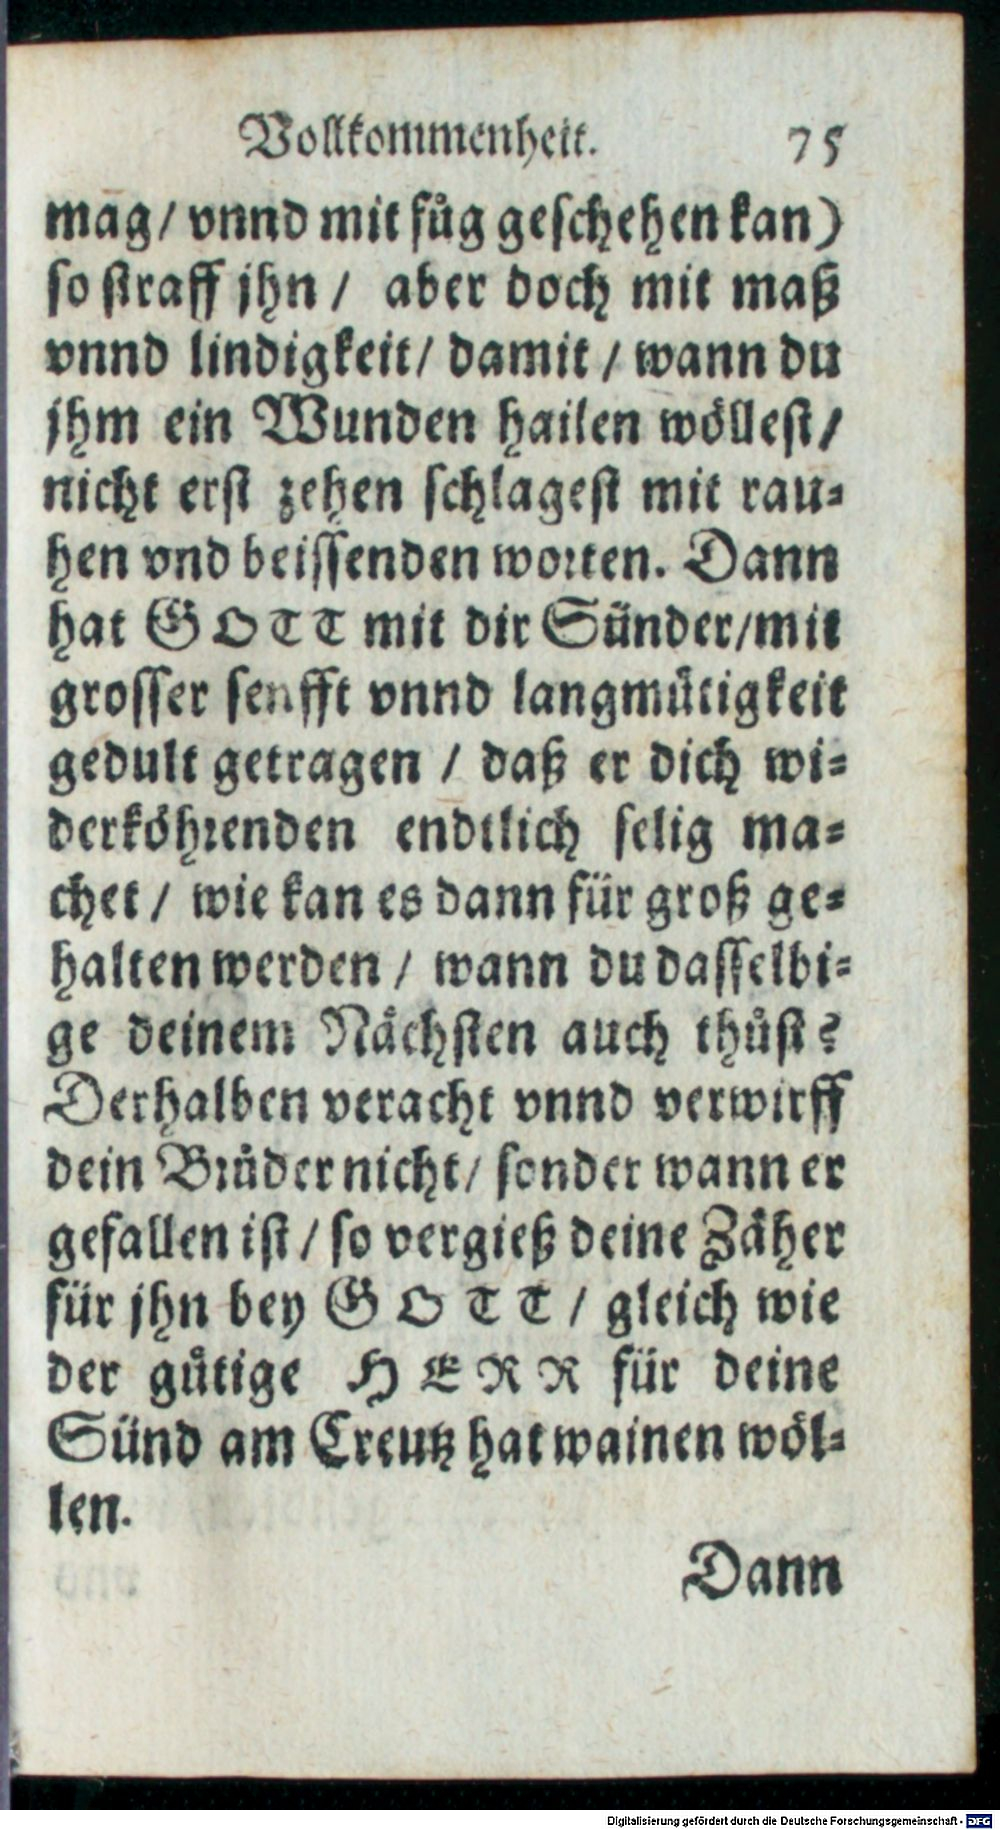 Vollkommenheit. 75
mag/ vnnd mit fůg geschehen kan)
so straff jhn / aber doch mit maß
vnnd lindigkeit/ damit / wann du
jhm ein Wunden hailen wöllest/
nicht erst zehen schlagest mit rau⸗
hen vnd beissenden worten. Dann
hat GOTT mit dir Sünder/mit
grosser senfft vnnd langmůtigkeit
gedult getragen / daß er dich wi⸗
derköhrenden endtlich selig ma⸗
chet / wie kan es dann für groß ge⸗
halten werden / wann du dasselbi⸗
ge deinem Nächsten auch thůst?
Derhalben veracht vnnd verwirff
dein Brůder nicht/ sonder wann er
gefallen ist / so vergieß deine Zäher
für jhn bey GOTT / gleich wie
der gůtige HERR für deine
Sünd am Creutz hat wainen wöl⸗
len.
Dann
Digitalisierung gefördert durch die Deutsche Forschungsgemeinschaft - DFG